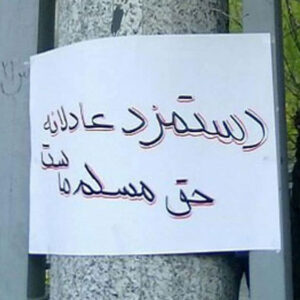 دستمزد عادلانه
حق مسلم ماست